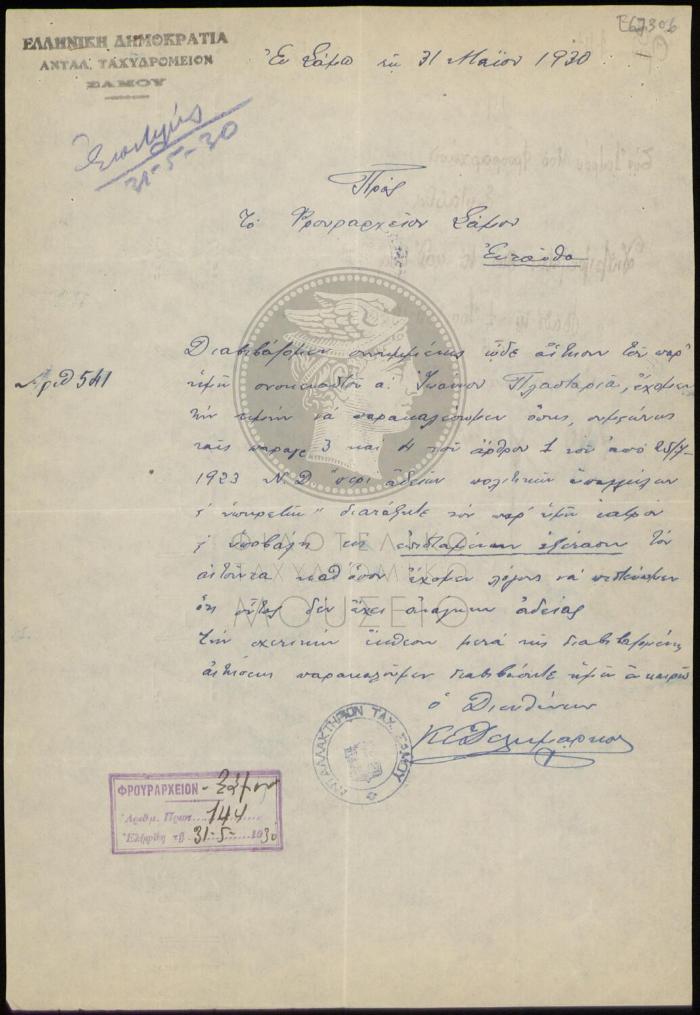 Ε67306
ΕΛΛΗΝΙΚΗ ΔΗΜΟΚΡΑΤΙΑ
ΑΝΤΑΛ. ΤΑΧΥΔΡΟΜΕΙΟΝ
ΣΑΜΟΥ
Ἐν Σάμῳ τῇ 31 Μαΐου 1930
31-5-30
Πρὸς
Τὸ Φρουραρχεῖον Σάμου
Ἐνταῦθα
Ἀριθ 541
Διαβιβάζομεν συνημμένως ὧδε αἴτησιν τοῦ παρ'
ἡμῖν Ἰωάννου Πλασταριᾶ, ἔχομεν
τὴν τιμὴν νὰ παρακαλέσωμεν ὅπως, συμφώνως
ταῖς παραγρ 3 καὶ 4 τοῦ ἄρθρου 1 τοῦ ἀπὸ
1923 Ν.Δ. "περὶ ἀδειῶν πολιτικῶν ὑπαλλήλων
ὑπηρετῶν" διατάξητε τὸν παρ' ὑμῖν ἰατρὸν
ὑποβάλῃ εἰς ἐξέτασιν τὸν
αἰτοῦντα καθ' ὅσον ἔχομεν λόγους νὰ πιστεύωμεν
ὅτι οὗτος δὲν ἔχει ἀνάγκην ἀδείας
Τὴν σχετικὴν ἔκθεσιν μετὰ τῆς διαβιβαζομένης
αἰτήσεως παρακαλοῦμεν διαβιβάσητε ἡμῖν
ὁ Διευθύνων
ΦΙΛΟΤΕΛΙΚΟ
ΤΑΧΥΔΡΟΜΙΚΟ
ΜΟΥΣΕΙΟ
ΑΝΤΑΛΛΑΚΤΗΡΙΟΝ ΤΑΧ. ΣΑΜΟΥ
ΦΡΟΥΡΑΡΧΕΙΟΝ Σάμου
Ἀριθμ. Πρωτ. 144
Ἐλήφθη τῇ 31-5-1930